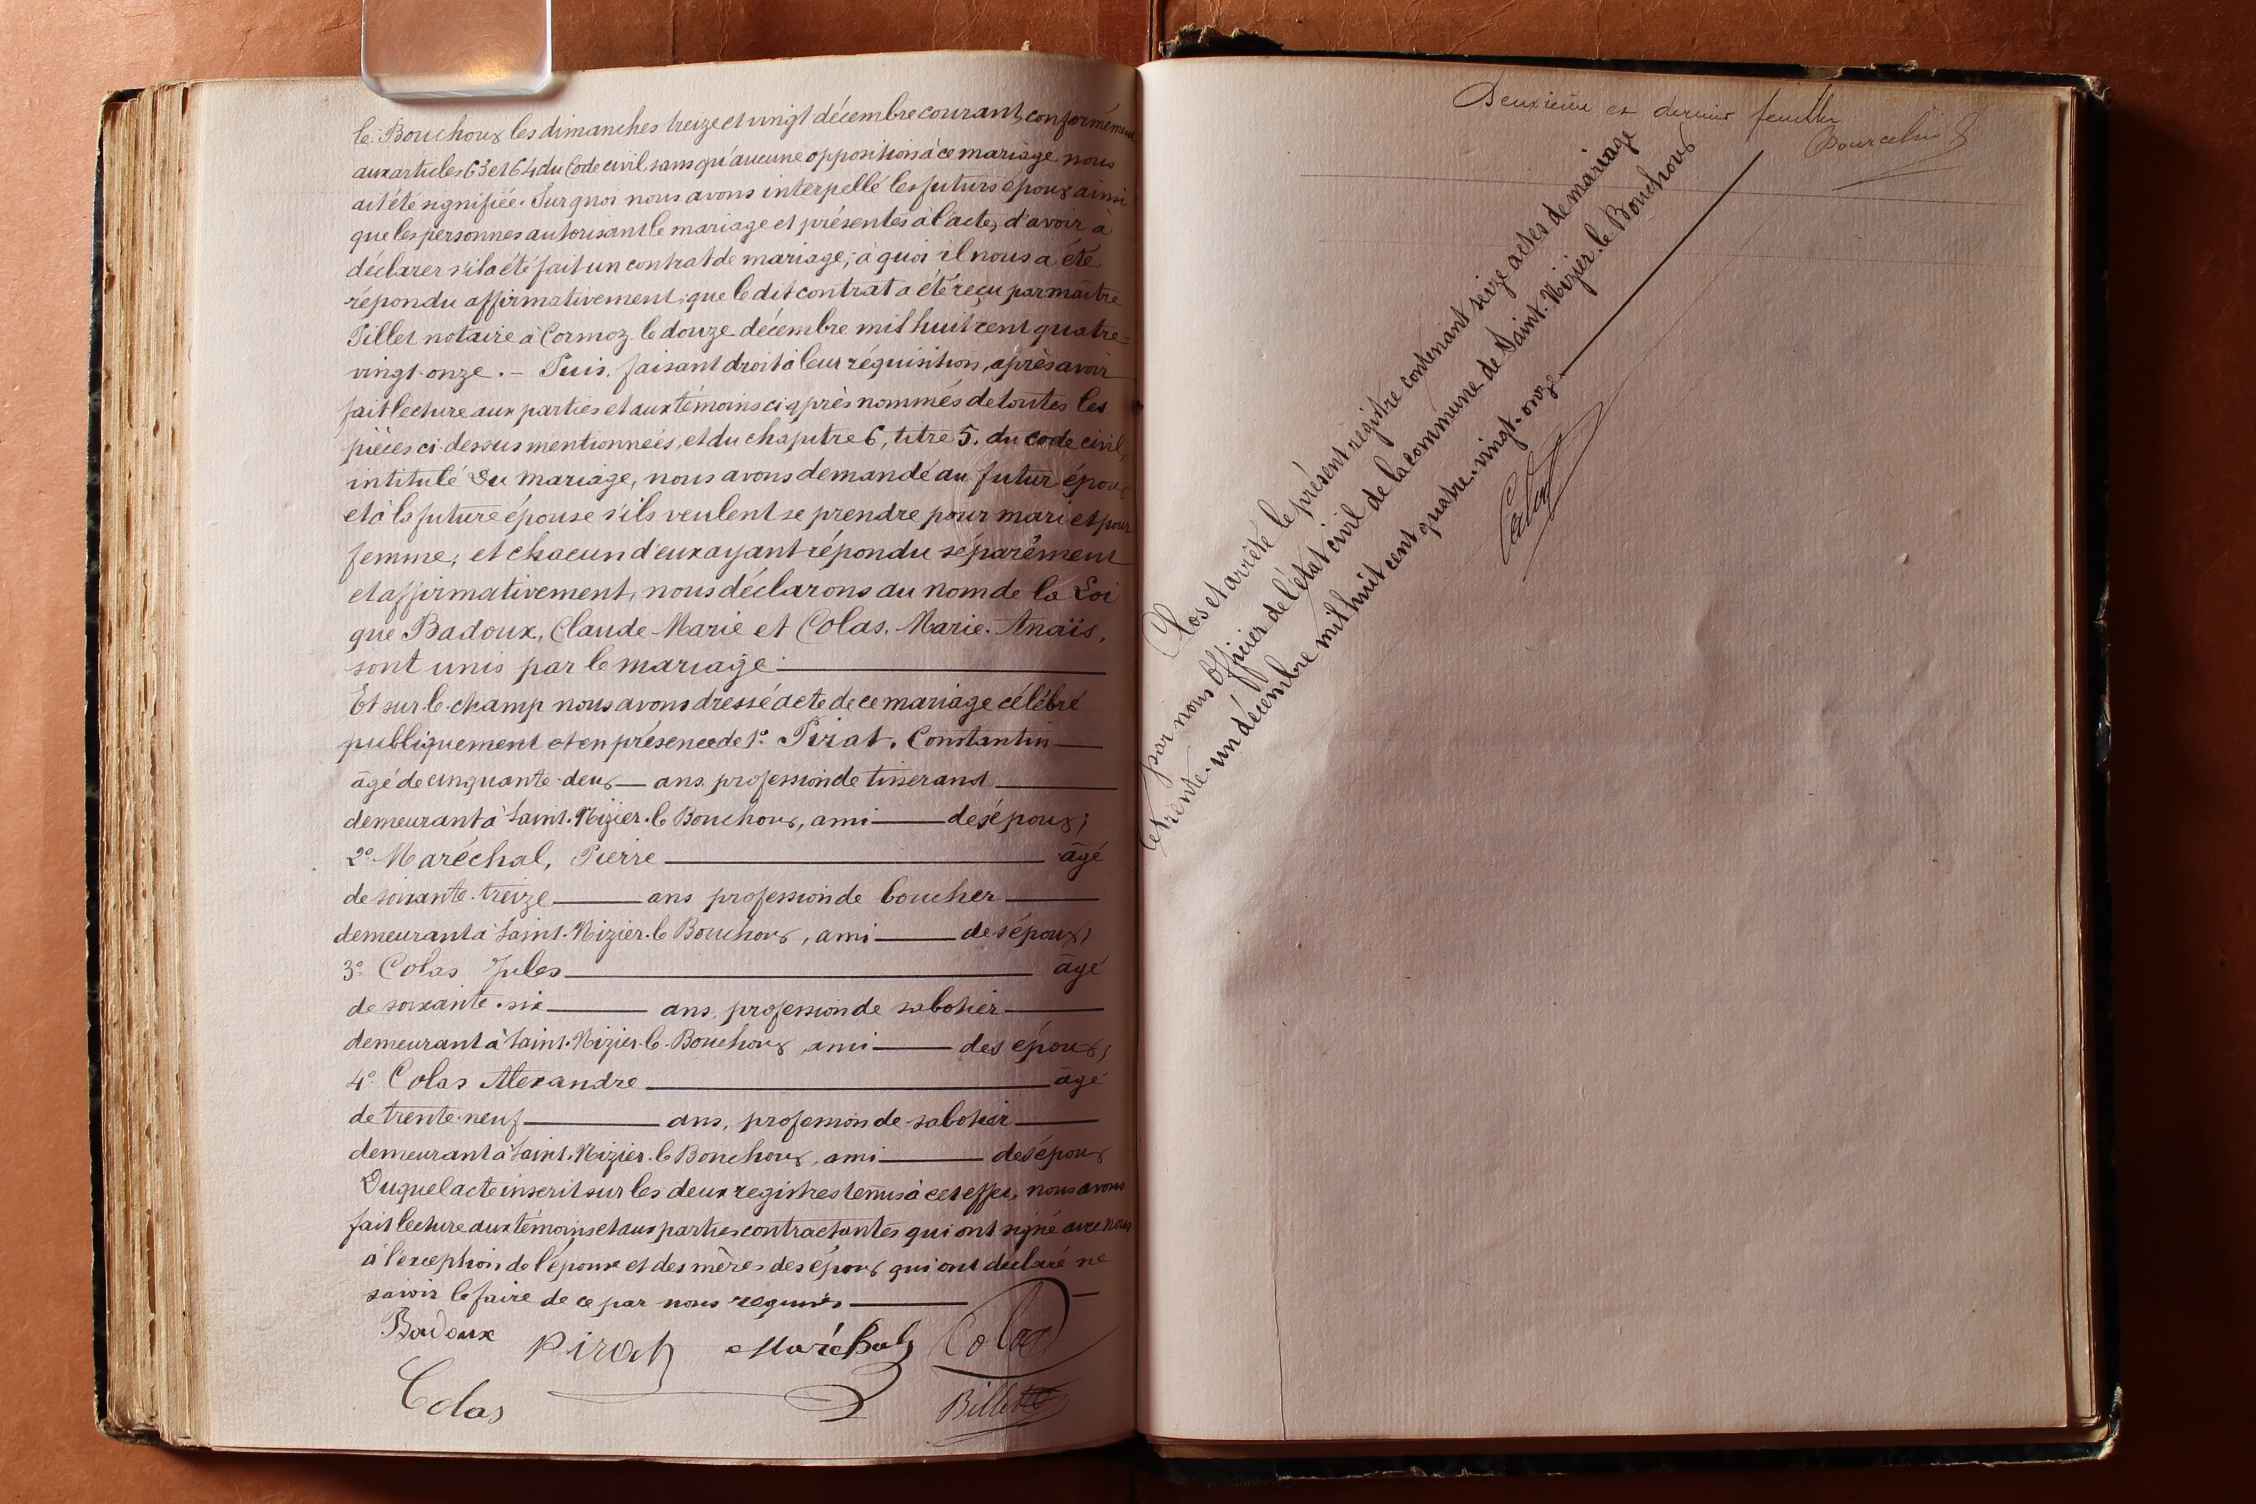 le Bouchoux les dimanches treize et vingt décembre courant, conformément
aux articles 63 et 64 du Code civil sans qu'aucune opposition à ce mariage nous
ait été signifiée. Sur quoi nous avons interpellé les futurs époux ainsi
que les personnes autorisant le mariage et présentes à l'acte, d'avoir à
déclarer s'il a été fait un contrat de mariage, à quoi il nous a été
répondu affirmativement; que le dit contrat a été reçu par maître
Pillet notaire à Cormoz le douze décembre mil huit cent quatre-
vingt-onze. – Puis, faisant droit à leur réquisition, après avoir
fait lecture aux parties et aux témoins ci après nommés de toutes les
pièces ci-dessus mentionnées, et du chapitre 6, titre 5. du code civil,
intitulé Du mariage, nous avons demandé au futur époux
et à la future épouse s'ils veulent se prendre pour mari et pour
femme; et chacun d'eux ayant répondu séparément
et affirmativement, nous déclarons au nom de la Loi
que Badoux, Claude-Marie et Colas, Marie-Anaïs,
sont unis par le mariage.
Et sur le champ nous avons dressé acte de ce mariage célébré
publiquement et en présence de 1° Pirat, Constantin
âgé de cinquante-deux ans, profession de tisserand
demeurant à Saint-Nizier-le Bouchoux, ami des époux;
2° Maréchal, Pierre âgé
de soixante-treize ans profession de boucher
demeurant à Saint-Nizier-le Bouchoux, ami des époux;
3° Colas Jules âgé
de soixante-six ans, profession de sabotier
demeurant à Saint-Nizier-le-Bouchoux, ami des époux;
4° Colas Alexandre âgé
de trente-neuf ans, profession de sabotier
demeurant à Saint-Nizier-le Bouchoux, ami des époux
Duquel acte inscrit sur les deux registres tenus à cet effet, nous avons
fait lecture aux témoins et aux parties contractantes qui ont signé avec nous
à l'exception de l'épouse et des mères des époux qui ont déclaré ne
savoir le faire de ce par nous requises
Badoux Pirat Maréchal Colas
Colas Billet
Deuxième et dernier feuillet
Clos et arrêté le présent registre contenant seize actes de mariage
par nous Officier de l'état civil de la commune de Saint-Nizier-le-Bouchoux
le trente-un décembre mil huit cent quatre-vingt-onze